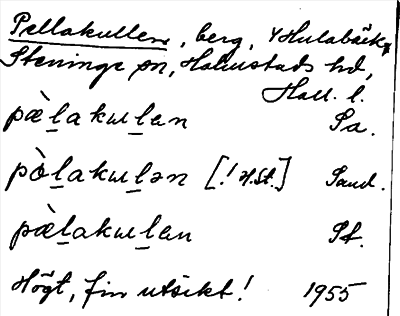 Pellakullen, berg, Hulabäck,
Steninge sn, Halmstads hd,
Hall. l.
pæ̀l̲akɯl̲ən Sa.
pò̀l̲akɯl̲ən [! H.St.] Sand.
pæ̀l̲akɯl̲ən St.
Högt, fin utsikt! 1955